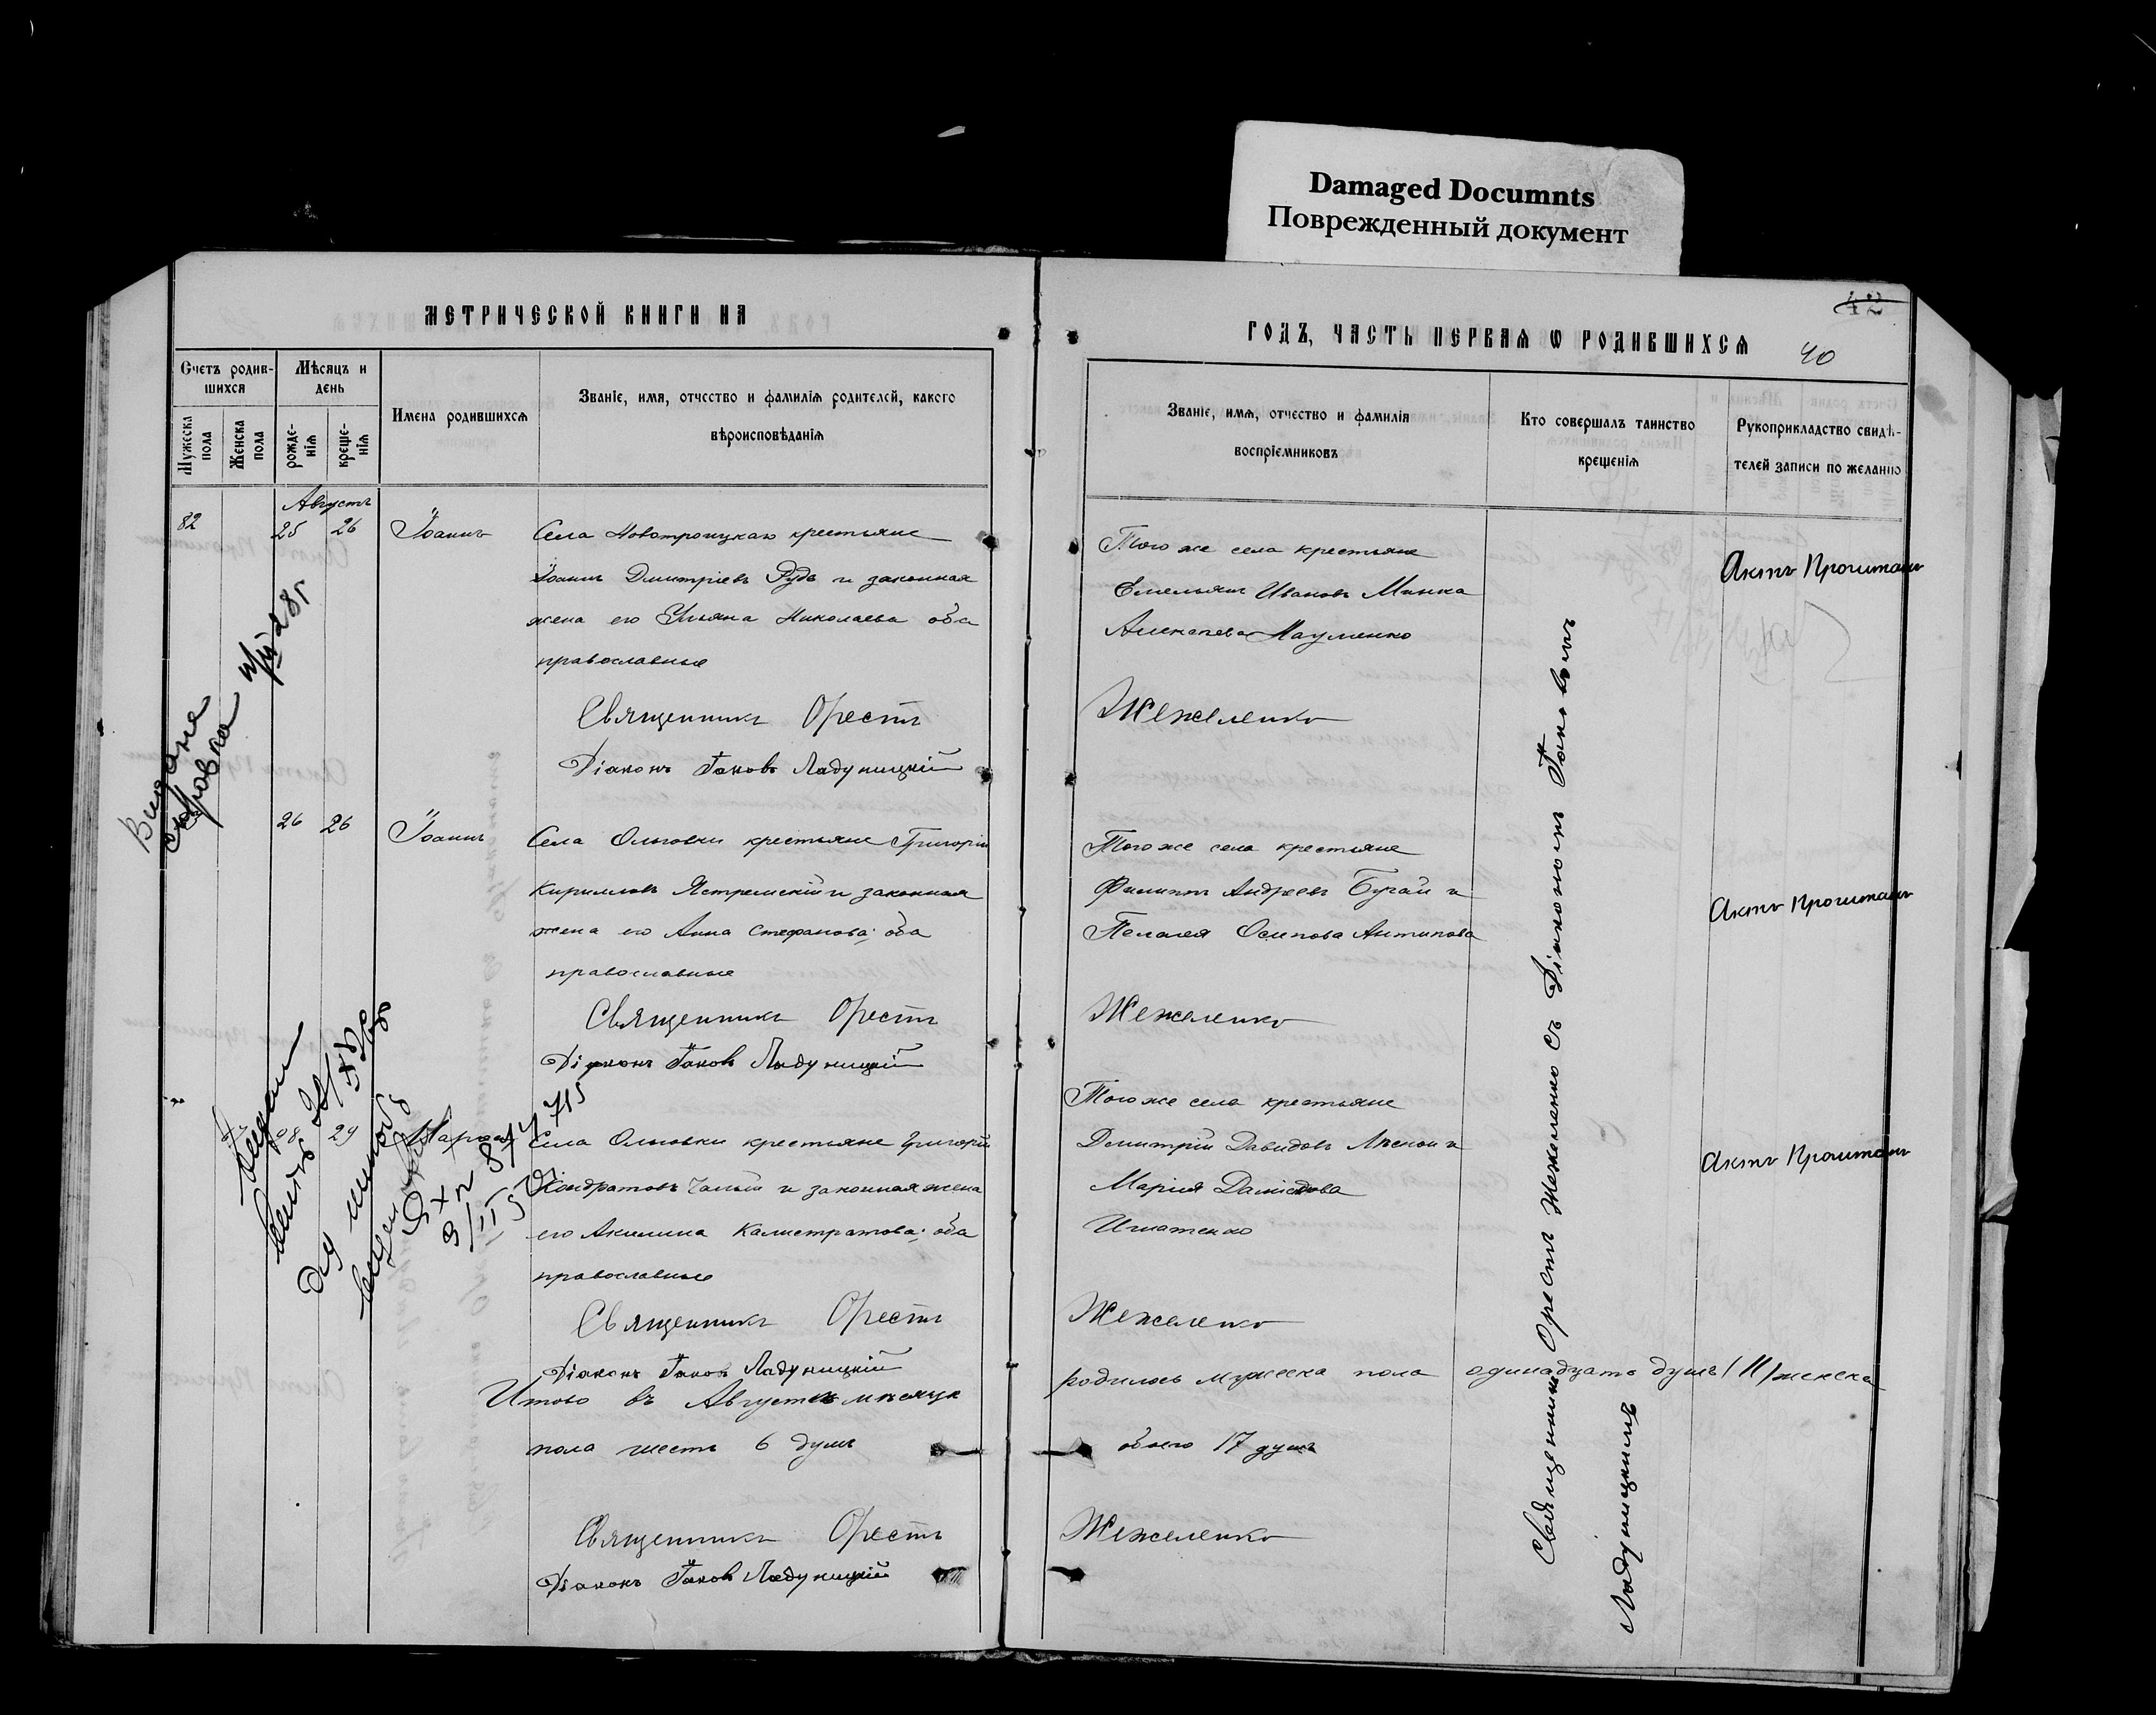 Damaged Documnts
Поврежденный документ
МЕТРИЧЕСКОЙ КНИГИ НА
ГОДЪ, ЧАСТЬ ПЕРВАЯ Ѡ РОДИВШИХСЯ
42
40
Счетъ родив-
шихся
Мужеска пола
Женска пола
Мѣсяцъ и
день
рожде-
нія
креще-
нія
Имена родившихся
Званіе, имя, отчество и фамилія родителей, какого
вѣроисповѣданія
Званіе, имя, отчество и фамилія
воспріемниковъ
Кто совершалъ таинство
крещенія
Рукоприкладство свидѣ-
телей записи по желанію
Августъ
82 25 26 Іоаннъ
Села Новотроицкаго крестьяне
Іоаннъ Дмитріевъ Рудь и законная
жена его Ульяна Николаева оба
православные
Священникъ Орестъ Жежеленко
Діаконъ Іаковъ Ладуницкій
Того же села крестьяне
Емельянъ Ивановъ Минка
Науменко
Актъ Прочиталъ
Видане
26 26 Іоаннъ
Села Ольговки крестьяне Григорій
Кирилловъ Ястремскій и законная
жена его Анна Стефанова; оба
православные
Священникъ Орестъ Жежеленко
Діаконъ Іаковъ Ладуницкій
Того же села крестьяне
Филиппъ Андреевъ Бугай и
Пелагея Осипова Антипова
Актъ Прочиталъ
29
Села Ольговки крестьяне Григорій
Кондратовъ Чалый и законная жена
его Акилина Калистратова; оба
православные
Священникъ Орестъ Жежеленко
Діаконъ Іаковъ Ладуницкій
Того же села крестьяне
Димитрій Давидовъ и
Марія
Игнатенко
Актъ Прочиталъ
Итого въ Августѣ мѣсяцѣ родилось мужеска пола одинадцать душъ (11) женска
пола шесть 6 душъ всего 17 душъ
Священникъ Орестъ Жежеленко
Діаконъ Іаковъ Ладуницкій
Священникъ Орестъ Жежеленко съ Діакономъ Іаковомъ
Ладуницкимъ